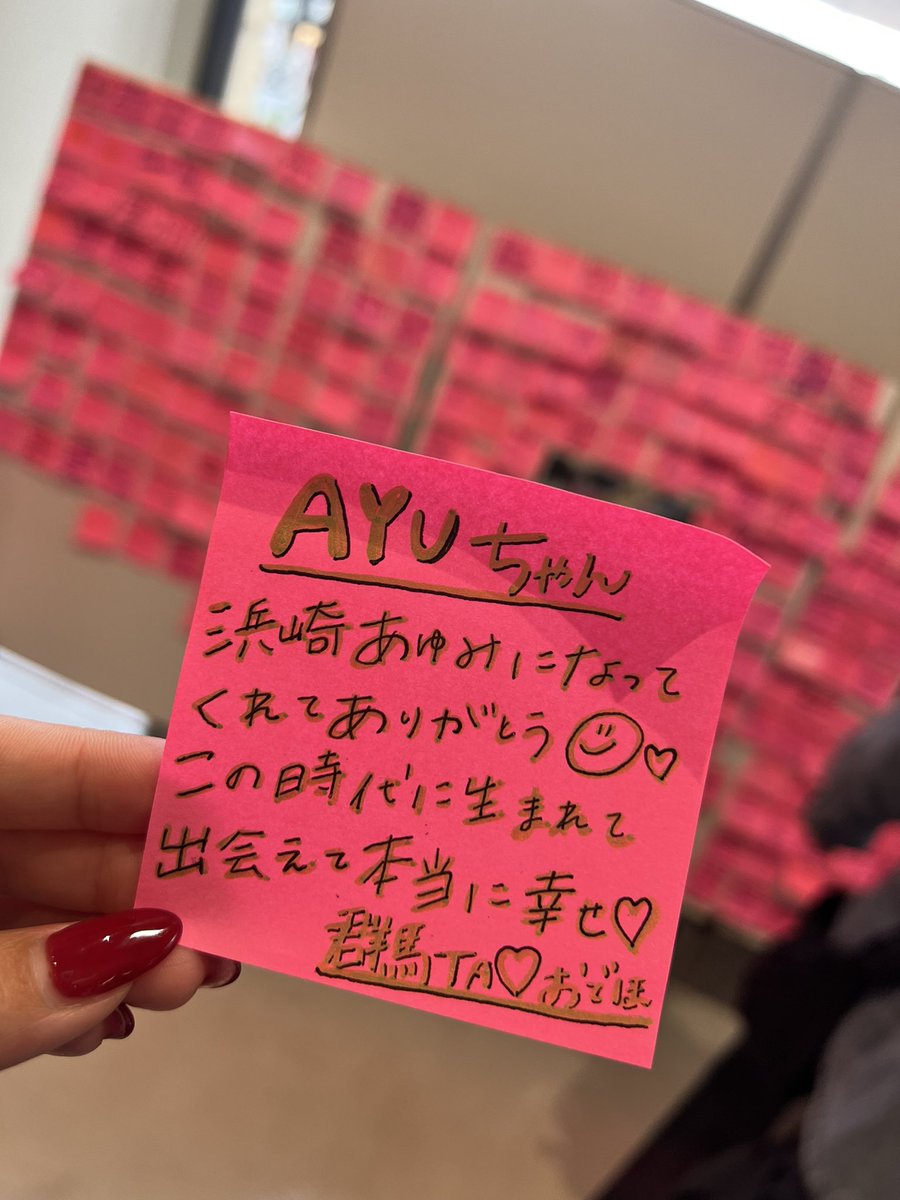 AYUちゃん
浜崎あゆみになって
くれてありがとう
この時代に生まれて
出会えて本当に幸せ♡
群馬TA♡おでほ